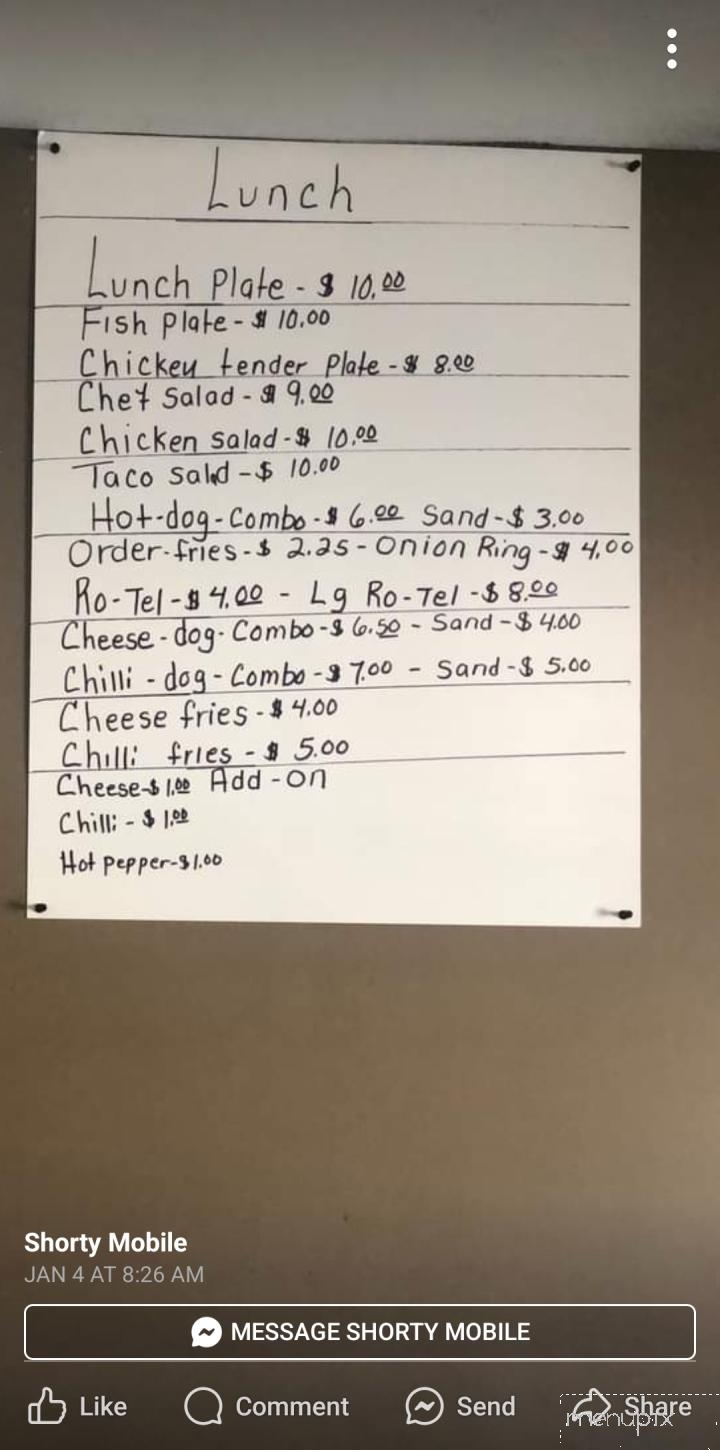 Lunch
Lunch Plate - $ 10.00
Fish Plate - $ 10.00
Chicken tender Plate - $ 8.00
Chef Salad - $ 9.00
Chicken Salad - $ 10.00
Taco Salad - $ 10.00
Hot-dog-Combo - $ 6.00 Sand - $ 3.00
Order-fries - $ 2.25 - Onion Ring - $ 4.00
Ro-Tel - $ 4.00 - Lg Ro-Tel - $ 8.00
Cheese-dog-Combo - $ 6.50 - Sand - $ 4.00
Chilli - dog - Combo - $ 7.00 - Sand - $ 5.00
Cheese fries - $ 4.00
Chilli fries - $ 5.00
Cheese - $ 1.00 Add-on
Chilli - $ 1.00
Hot Pepper - $ 1.00
Shorty Mobile
JAN 4 AT 8:26 AM
MESSAGE SHORTY MOBILE
Like Comment Send Share
menupix